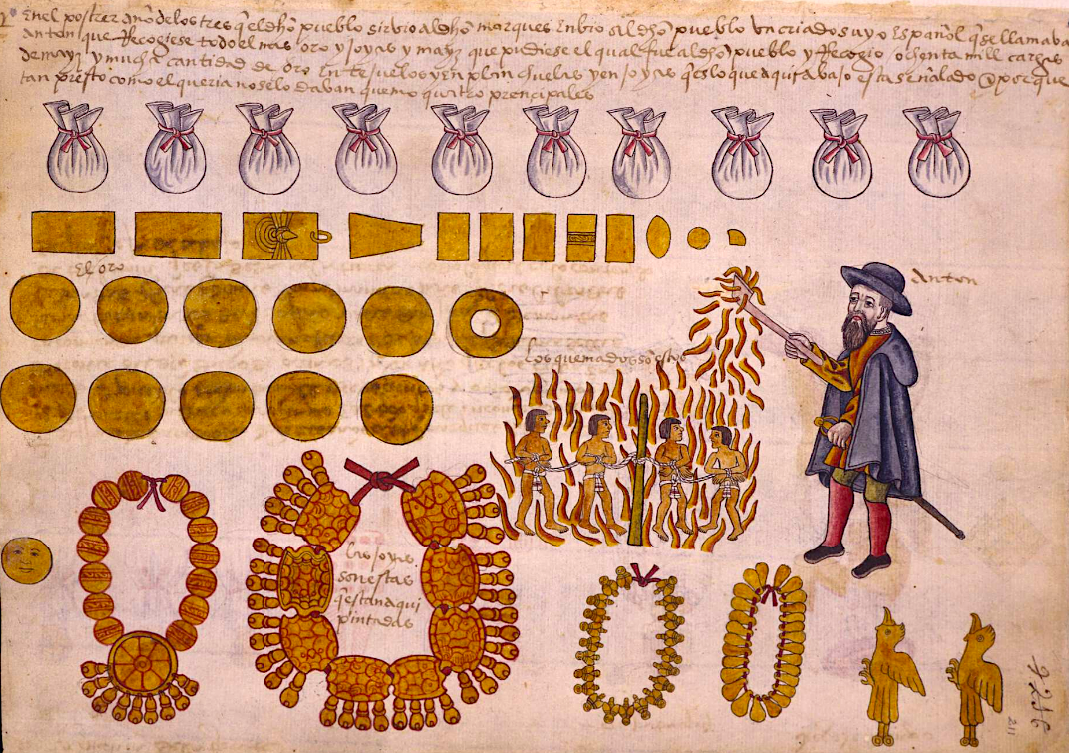 En el postrer año de los tres q̄ el dho pueblo sirvio al dho marques Enbio al dho pueblo Un criado suyo Español q̄ se llamava
Anton que Recogiese todo el mas oro y joyas y mayz que pudiese el qual fue al dho pueblo y Recogio ochenta mill cargas
de mayz y mucha cantidad de oro En tejuelos y En planchuelas y en joyas q̄ es lo que aqui abajo esta señalado porque
tan presto como el queria no se lo daban quemo quatro prencipales
El oro
Anton
Los quemados son estos
las joyas
son estas
q̄ estan aqui
pintadas
211